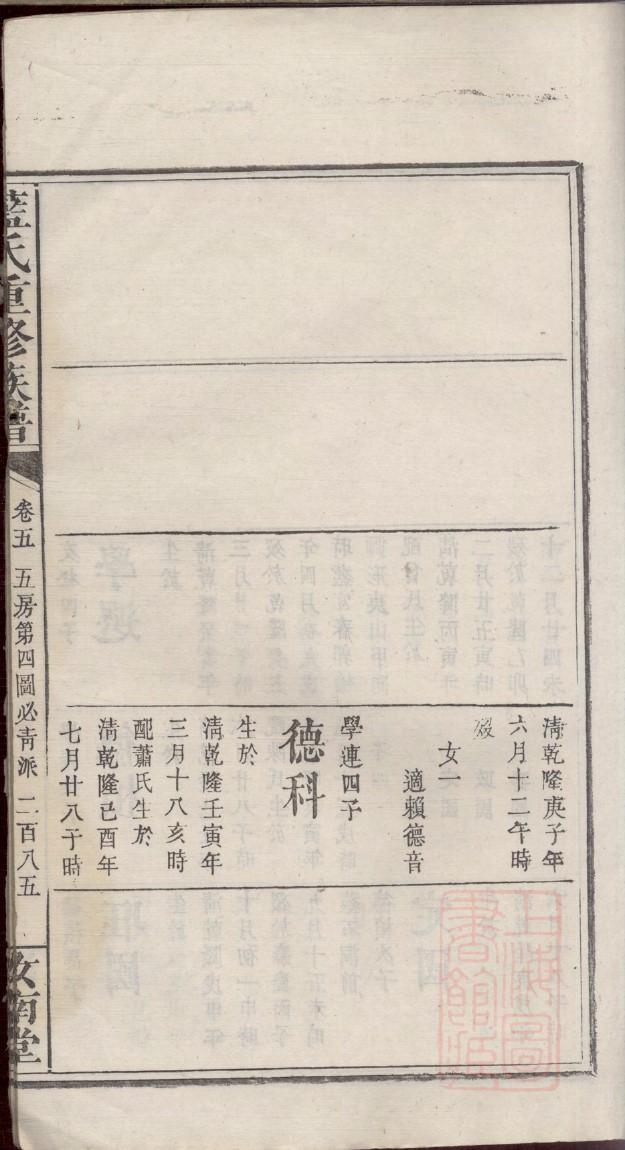 清乾隆庚子年
六月十二午時
歿
女
適賴德音
學連四子
德科
生於
清乾隆壬寅年
三月十八亥時
配蕭氏生於
清乾隆己酉年
七月廿八子時
藍氏重修族譜
卷五 五房第四圖必青派 二百八五
汝南堂